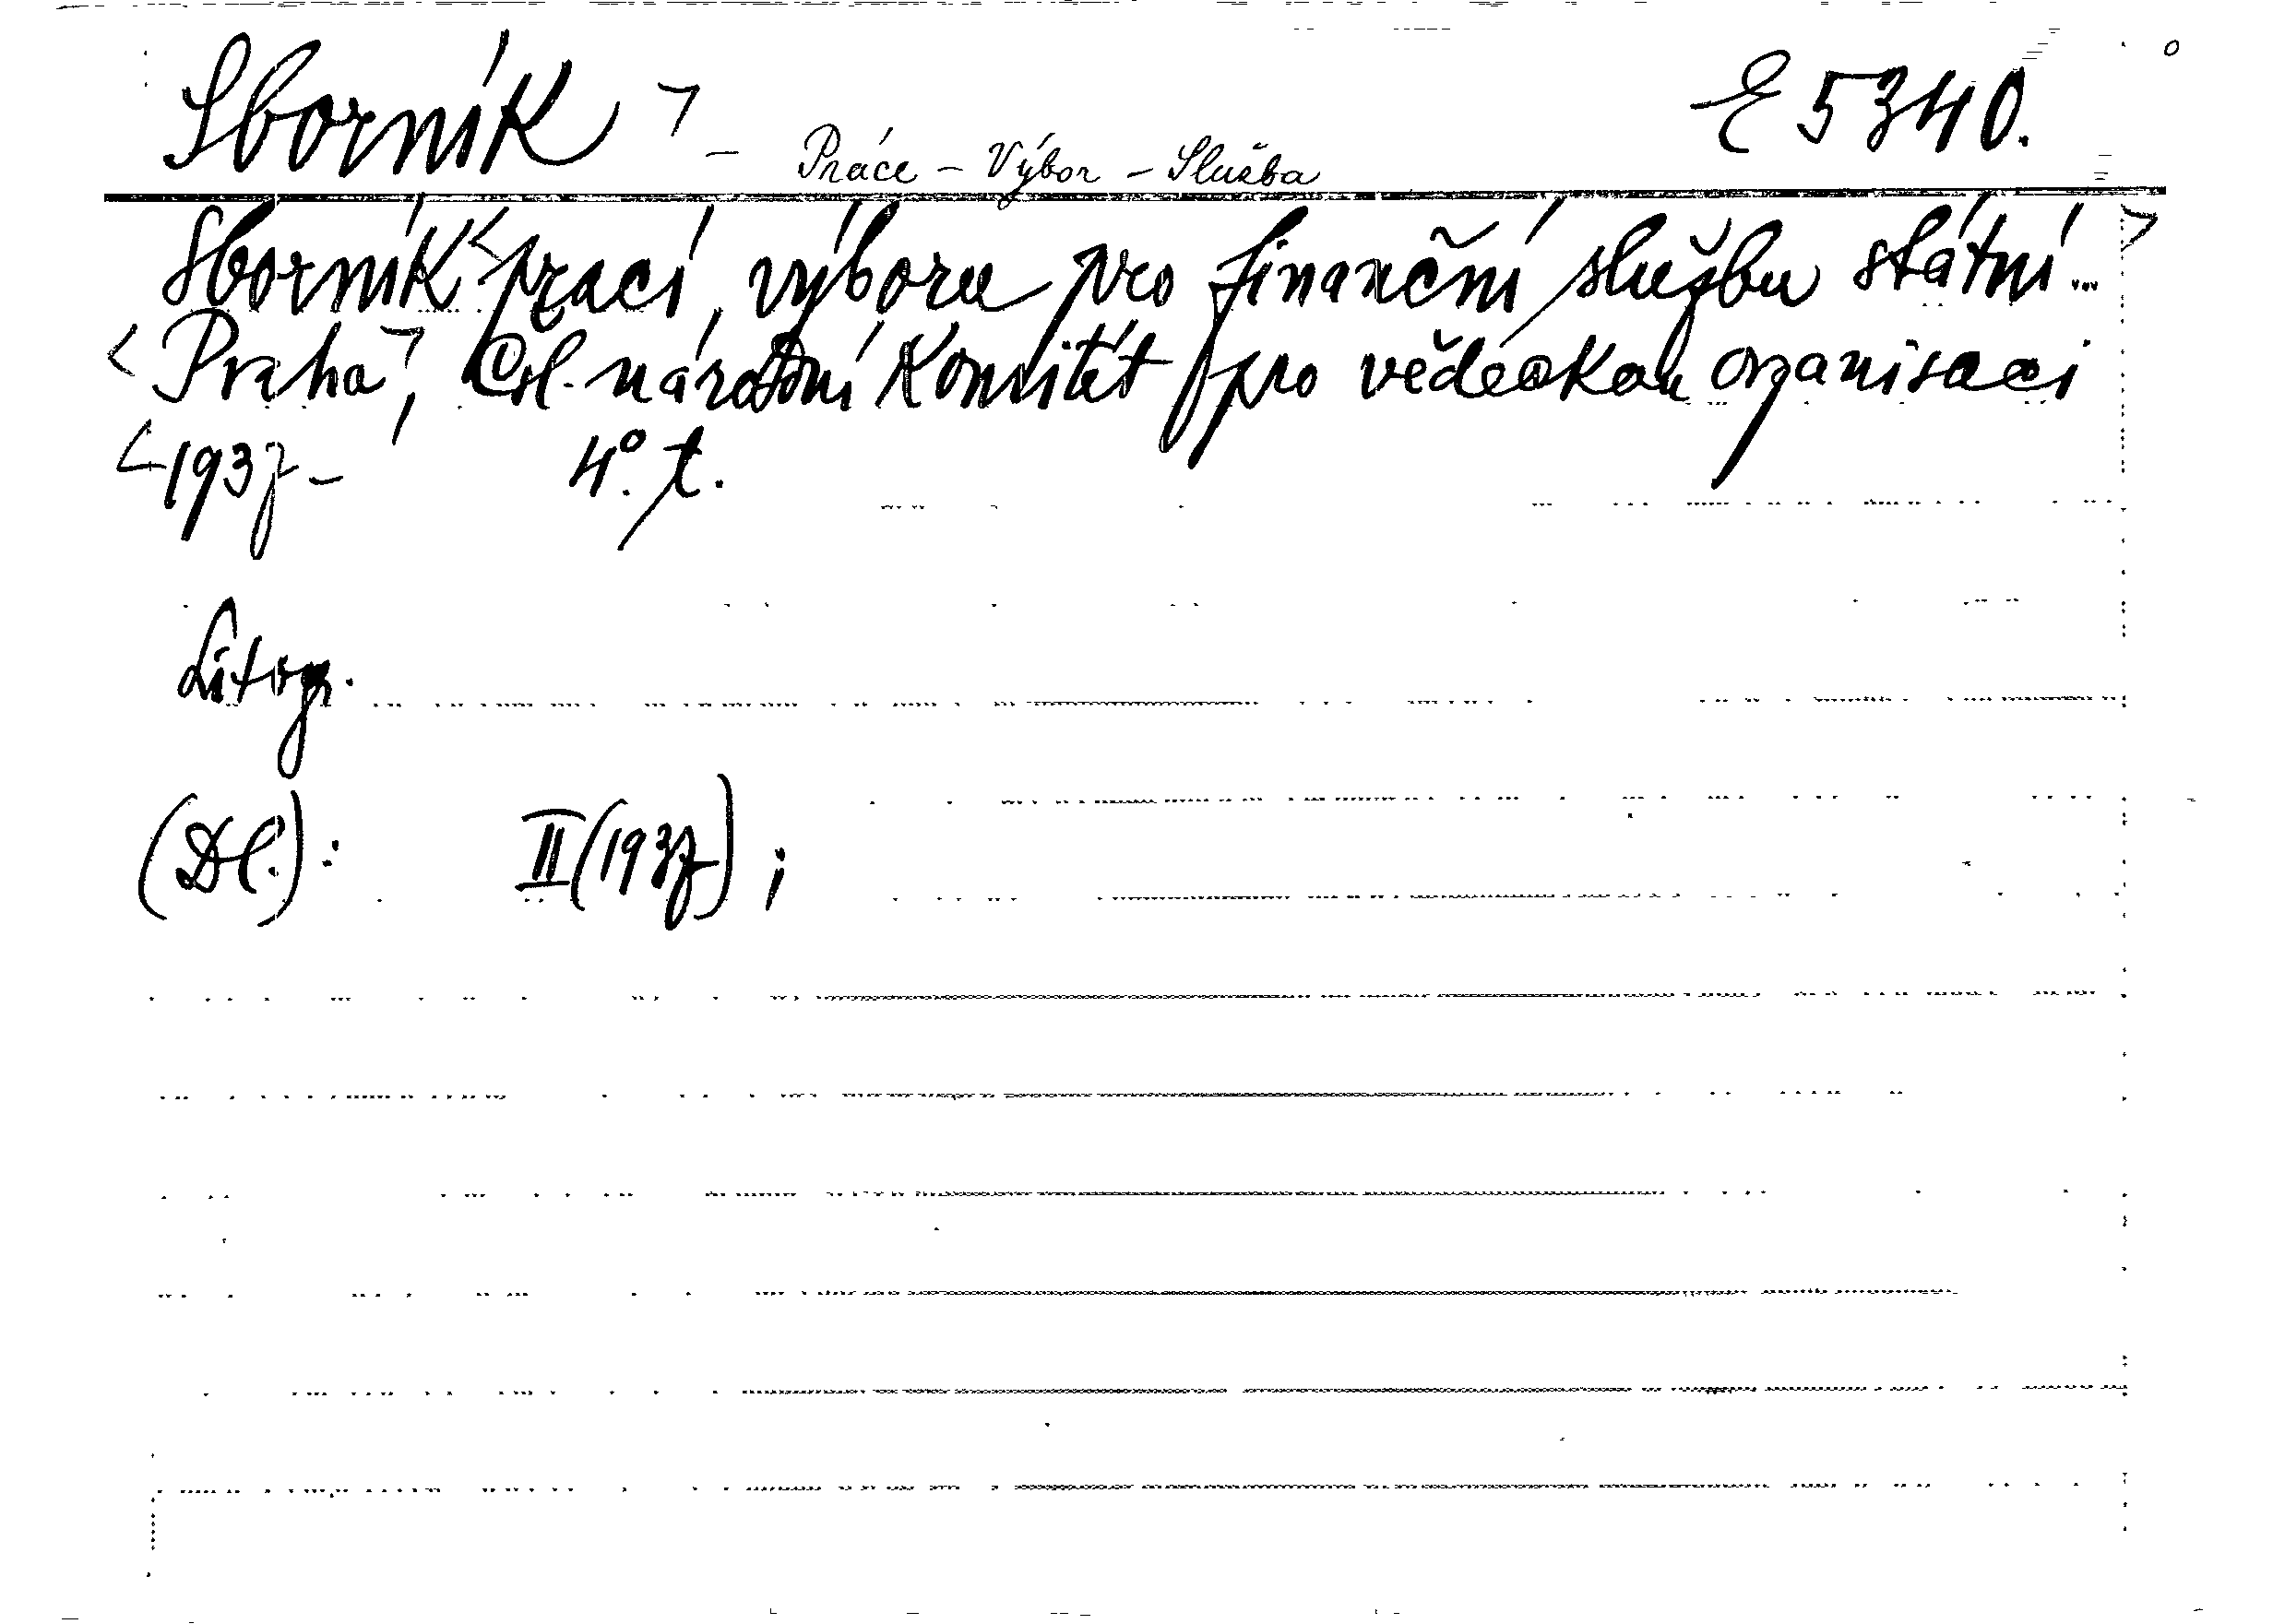 Sborník ⌝ - Práce - Výbor - Služba E 5340.
Sborník < prací výboru pro finanční službu státní ... ⌝
< Praha ⌝, Čsl. národní Komitét pro vědeckou organisaci
< 1937 - 4°. t.
Litogr.
(Dl.): II (1937) ;